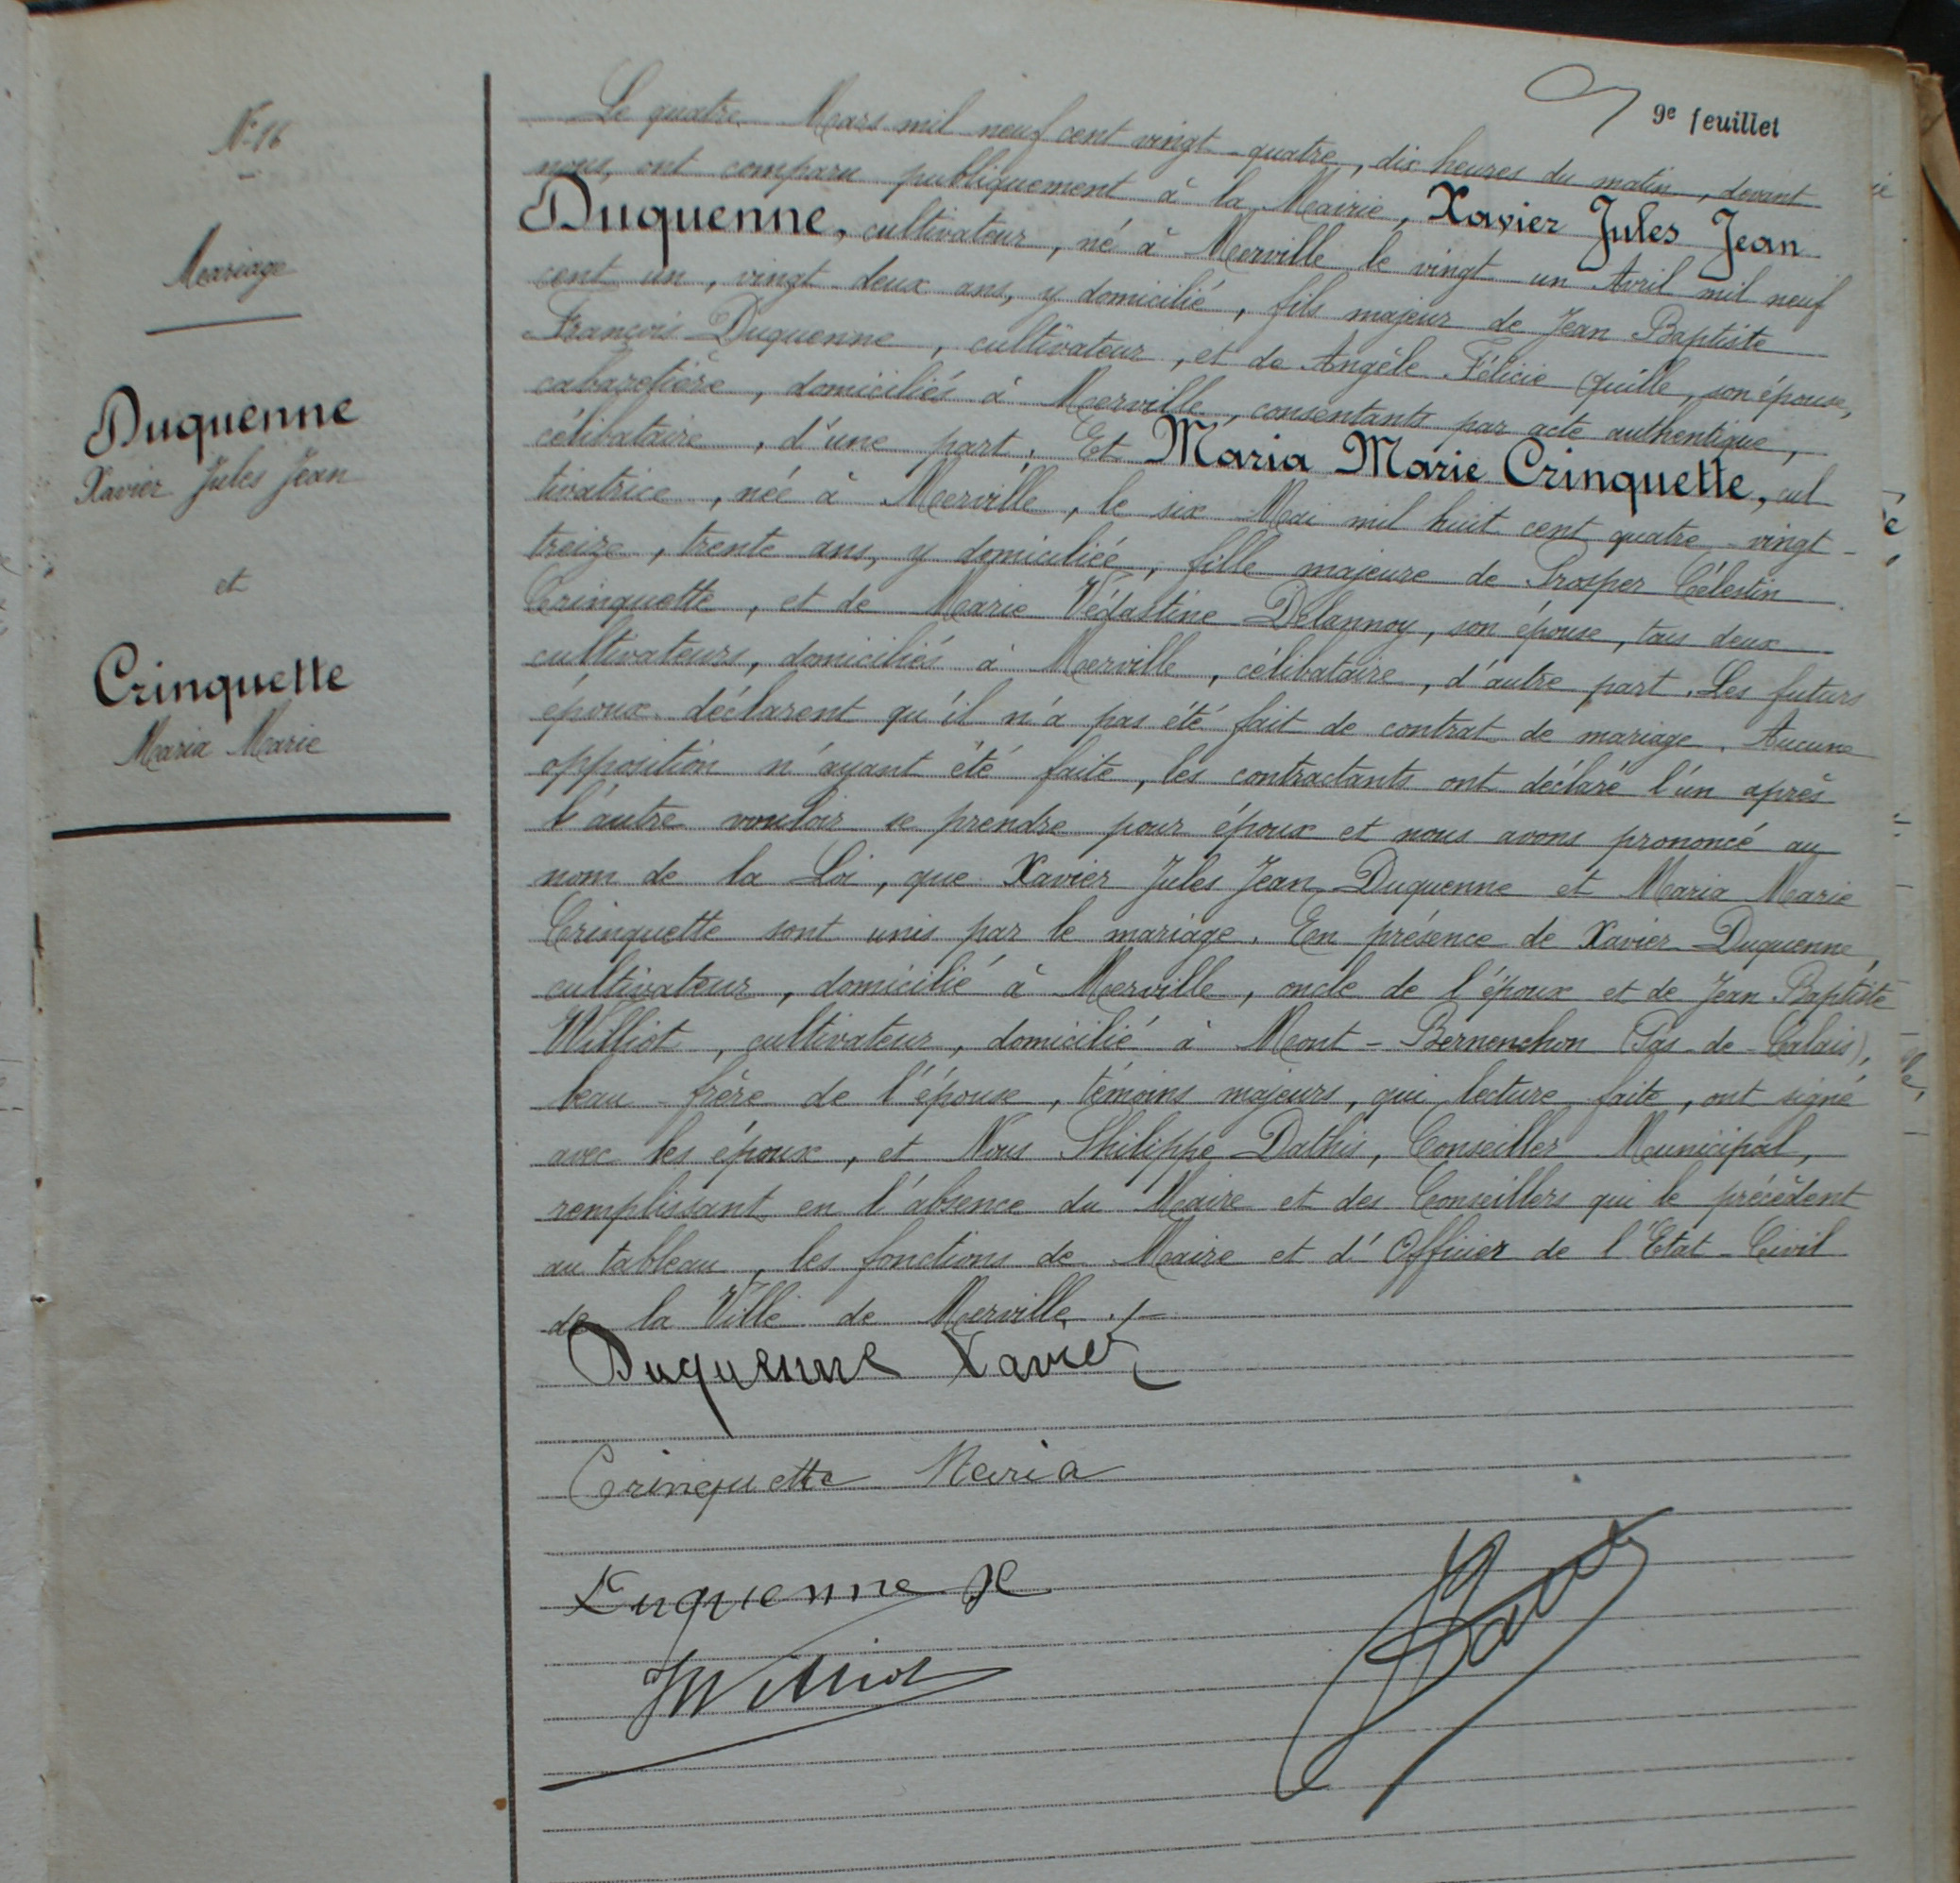 9e feuillet
N° 16
Mariage
Duquenne
Xavier Jules Jean
et
Crinquette
Maria Marie
Le quatre Mars mil neuf cent vingt-quatre, dix heures du matin, devant
nous, ont comparu publiquement à la Mairie, Xavier Jules Jean
Duquenne, cultivateur, né à Merville le vingt un Avril mil neuf
cent un, vingt deux ans, y domicilié, fils majeur de Jean Baptiste
François Duquenne, cultivateur, et de Angèle Félicie Quille, son épouse,
cabaretière, domiciliés à Merville, consentants par acte authentique,
célibataire, d'une part. Et Maria Marie Crinquette, cul
tivatrice, née à Merville, le six Mai mil huit cent quatre-vingt-
treize, trente ans, y domiciliée, fille majeure de Prosper Célestin
Crinquette, et de Marie Védastine Delannoy, son épouse, tous deux
cultivateurs, domiciliés à Merville, célibataire, d'autre part. Les futurs
époux déclarent qu'il n'a pas été fait de contrat de mariage. Aucune
opposition n'ayant été faite, les contractants ont déclaré l'un après
l'autre vouloir se prendre pour époux et nous avons prononcé au
nom de la Loi, que Xavier Jules Jean Duquenne et Maria Marie
Crinquette sont unis par le mariage. En présence de Xavier Duquenne,
cultivateur, domicilié à Merville, oncle de l'époux et de Jean Baptiste
Williot, cultivateur, domicilié à Mont-Bernenchon (Pas-de-Calais),
beau-frère de l'épouse, témoins majeurs, qui, lecture faite, ont signé
avec les époux, et Nous Philippe Dathis, Conseiller Municipal,
remplissant en l'absence du Maire et des Conseillers qui le précèdent
au tableau, les fonctions de Maire et d'Officier de l'Etat-Civil
de la Ville de Merville ./-
Duquenne Xavier
Crinquette Maria
Duquenne X
JWilliot